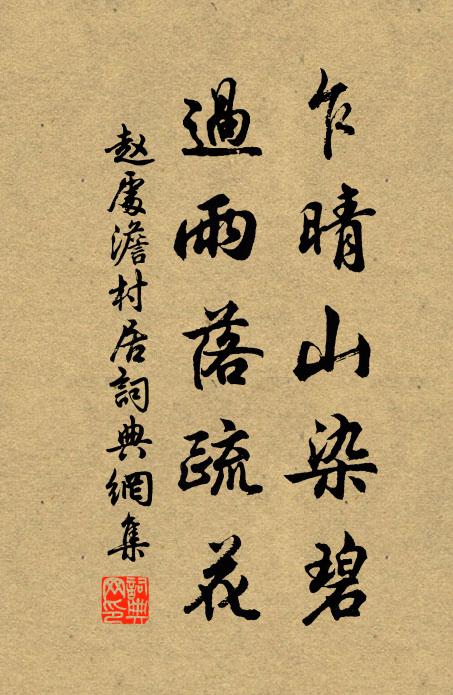 乍晴山染碧
過雨落疏花
赵處澹村居詞典網集
詞典
网印